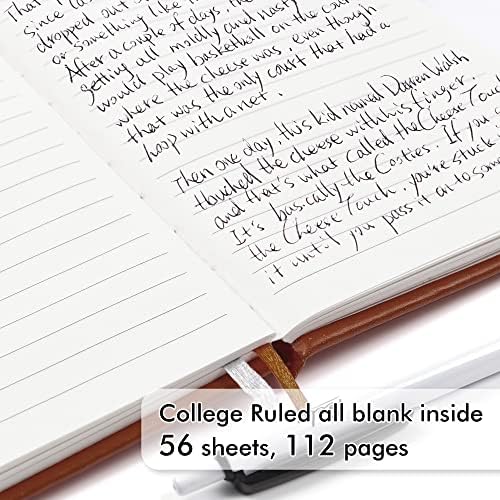 That
since
dropped out
or something like
After a couple of days, the
getting all moldly and nasty
would play basketball on the cou
where the cheese was, even though
that was the only court that had a
hoop with a net.
Then one day, this kid named Darren Walsh
touched the cheese with his finger,
and that's what called the Cheese Touc
It's basically the Costies. If you g
the Cheese Touch, you're stuck
it until you pass it on to some
College Ruled all blank inside
56 sheets, 112 pages